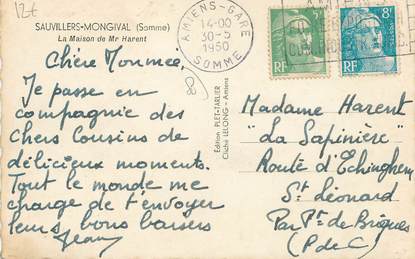 12€
SAUVILLERS-MONGIVAL (Somme)
La Maison de Mr Harent
Chère Mounmée,
Je passe en
compagnie des
Chers Cousins de
délicieux moments.
Tout le monde me
charge de t'envoyer
leurs bons baisers
Jean
80
Edition PLET-TARLIER
Cliché LELONG - Amiens
AMIENS-GARE
14-00
30-5
1950
SOMME
RF
8F
RF
Madame Harent
"La Sapinière"
Route d'Echinghem
St Léonard
Par Pt de Briques
(P de C)